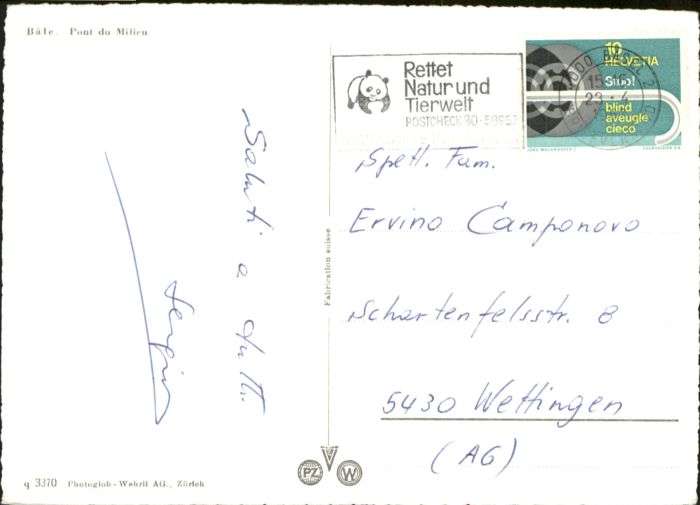 Bâle. Pont du Milieu
Saluti a tutti
Sergio
q 3370 Photoglob-Wehrli AG., Zürich
Fabrication suisse
PZ
W
Rettet
Natur und
Tierwelt
POSTCHECK 80-
10
HELVETIA
Stop!
blind
aveugle
cieco
Spett. Fam.
Ervino Camponovo
Schartenfelsstr. 8
5430 Wettingen
(AG)